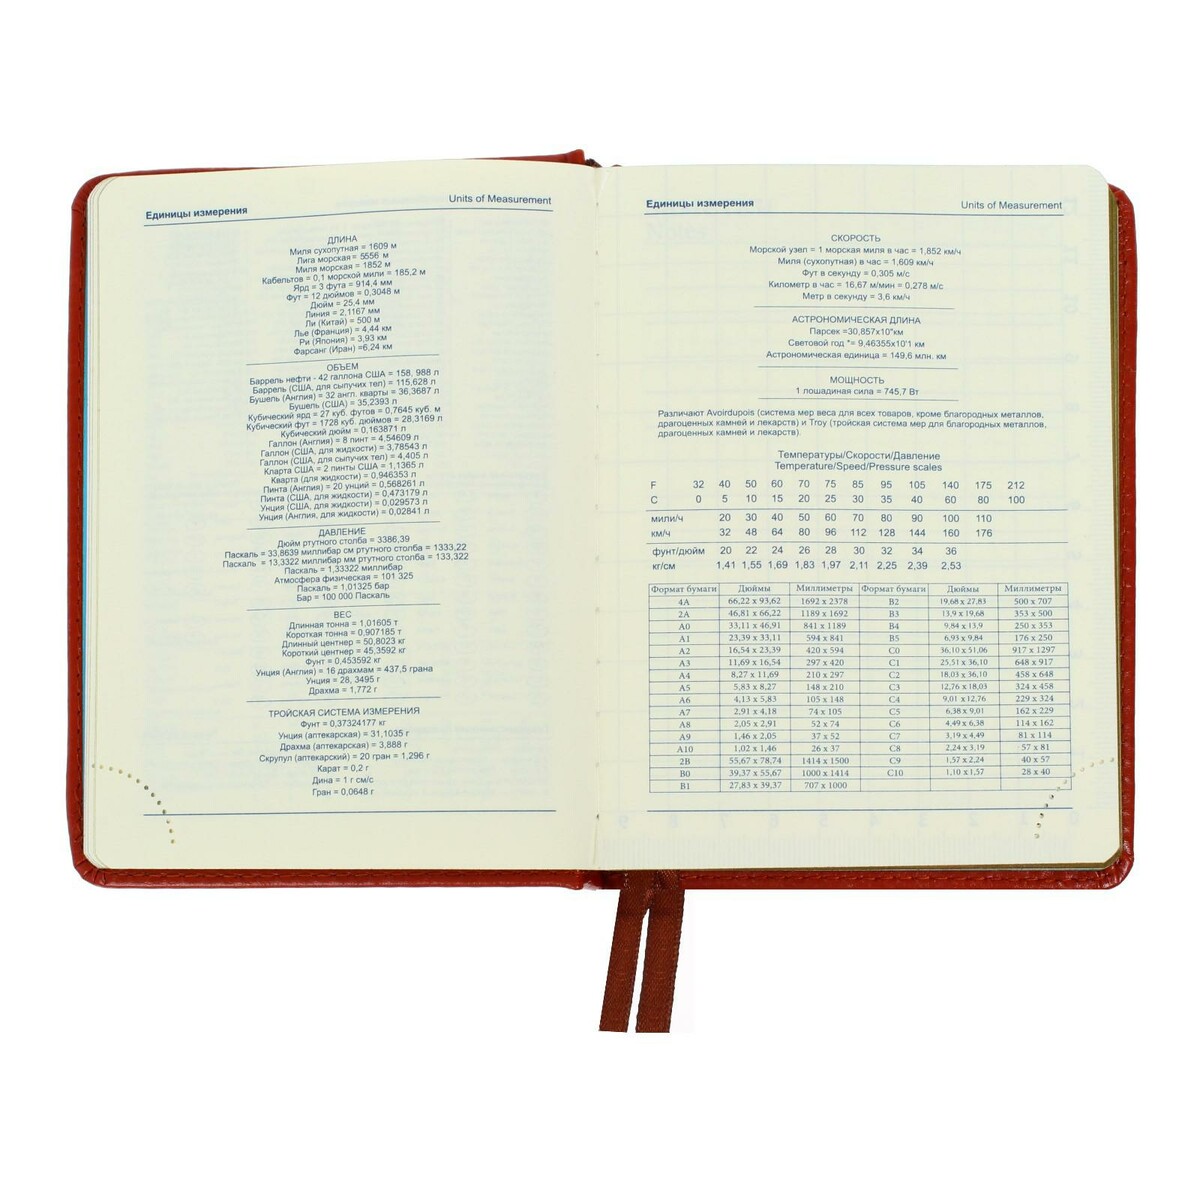 Единицы измерения Units of Measurement
ДЛИНА
Миля сухопутная = 1609 м
Лига морская= 5556 м
Миля морская = 1852 м
Кабельтов = 0,1 морской мили = 185,2 м
Ярд = 3 фута = 914,4 мм
Фут = 12 дюймов = 0,3048 м
Дюйм = 25,4 мм
Линия = 2,1167 мм
Ли (Китай) = 500 м
Лье (Франция) = 4,44 км
Ри (Япония) = 3,93 км
Фарсанг (Иран) =6,24 км
ОБЪЕМ
Баррель нефти - 42 галлона США = 158, 988 л
Баррель (США, для сыпучих тел) = 115,628 л
Бушель (Англия) = 32 англ. кварты = 36,3687 л
Бушель (США) = 35,2393 л
Кубический ярд = 27 куб. футов = 0,7645 куб. м
Кубический фут = 1728 куб. дюймов = 28,3169 л
Кубический дюйм = 0,163871 л
Галлон (Англия) = 8 пинт = 4,54609 л
Галлон (США, для жидкости) = 3,78543 л
Галлон (США, для сыпучих тел) = 4,405 л
Кларта США = 2 пинты США = 1,1365 л
Кварта (для жидкости) = 0,946353 л
Пинта (Англия) = 20 унций = 0,568261 л
Пинта (США, для жидкости) = 0,473179 л
Унция (США, для жидкости) = 0,029573 л
Унция (Англия, для жидкости) = 0,02841 л
ДАВЛЕНИЕ
Дюйм ртутного столба = 3386,39
Паскаль = 33,8639 миллибар см ртутного столба = 1333,22
Паскаль = 13,3322 миллибар мм ртутного столба = 133,322
Паскаль = 1,33322 миллибар
Атмосфера физическая = 101 325
Паскаль = 1,01325 бар
Бар = 100 000 Паскаль
ВЕС
Длинная тонна = 1,01605 т
Короткая тонна = 0,907185 т
Длинный центнер = 50,8023 кг
Короткий центнер = 45,3592 кг
Фунт = 0,453592 кг
Унция (Англия) = 16 драхмам = 437,5 грана
Унция = 28, 3495 г
Драхма = 1,772 г
ТРОЙСКАЯ СИСТЕМА ИЗМЕРЕНИЯ
Фунт = 0,37324177 кг
Унция (аптекарская) = 31,1035 г
Драхма (аптекарская) = 3,888 г
Скрупул (аптекарский) = 20 гран = 1,296 г
Карат = 0,2 г
Дина = 1 г см/с
Гран = 0,0648 г
Единицы измерения Units of Measurement
СКОРОСТЬ
Морской узел = 1 морская миля в час = 1,852 км/ч
Миля (сухопутная) в час = 1,609 км/ч
Фут в секунду = 0,305 м/с
Километр в час = 16,67 м/мин = 0,278 м/с
Метр в секунду = 3,6 км/ч
АСТРОНОМИЧЕСКАЯ ДЛИНА
Парсек =30,857x10"км
Световой год "= 9,46355x10'1 км
Астрономическая единица = 149,6 млн. км
МОЩНОСТЬ
1 лошадиная сила = 745,7 Вт
Различают Avoirdupois (система мер веса для всех товаров, кроме благородных металлов,
драгоценных камней и лекарств) и Troy (тройская система мер для благородных металлов,
драгоценных камней и лекарств).
Температуры/Скорости/Давление
Temperature/Speed/Pressure scales
F 32 40 50 60 70 75 85 95 105 140 175 212
C 0 5 10 15 20 25 30 35 40 60 80 100
мили/ч 20 30 40 50 60 70 80 90 100 110
км/ч 32 48 64 80 96 112 128 144 160 176
фунт/дюйм 20 22 24 26 28 30 32 34 36
кг/см 1,41 1,55 1,69 1,83 1,97 2,11 2,25 2,39 2,53
Формат бумаги Дюймы Миллиметры Формат бумаги Дюймы Миллиметры
4A 66,22 x 93,62 1692 x 2378 B2 19,68 x 27,83 500 x 707
2A 46,81 x 66,22 1189 x 1692 B3 13,9 x 19,68 353 x 500
A0 33,11 x 46,91 841 x 1189 B4 9,84 x 13,9 250 x 353
A1 23,39 x 33,11 594 x 841 B5 6,93 x 9,84 176 x 250
A2 16,54 x 23,39 420 x 594 C0 36,10 x 51,06 917 x 1297
A3 11,69 x 16,54 297 x 420 C1 25,51 x 36,10 648 x 917
A4 8,27 x 11,69 210 x 297 C2 18,03 x 36,10 458 x 648
A5 5,83 x 8,27 148 x 210 C3 12,76 x 18,03 324 x 458
A6 4,13 x 5,83 105 x 148 C4 9,01 x 12,76 229 x 324
A7 2,91 x 4,18 74 x 105 C5 6,38 x 9,01 162 x 229
A8 2,05 x 2,91 52 x 74 C6 4,49 x 6,38 114 x 162
A9 1,46 x 2,05 37 x 52 C7 3,19 x 4,49 81 x 114
A10 1,02 x 1,46 26 x 37 C8 2,24 x 3,19 57 x 81
2B 55,67 x 78,74 1414 x 1500 C9 1,57 x 2,24 40 x 57
B0 39,37 x 55,67 1000 x 1414 C10 1,10 x 1,57 28 x 40
B1 27,83 x 39,37 707 x 1000